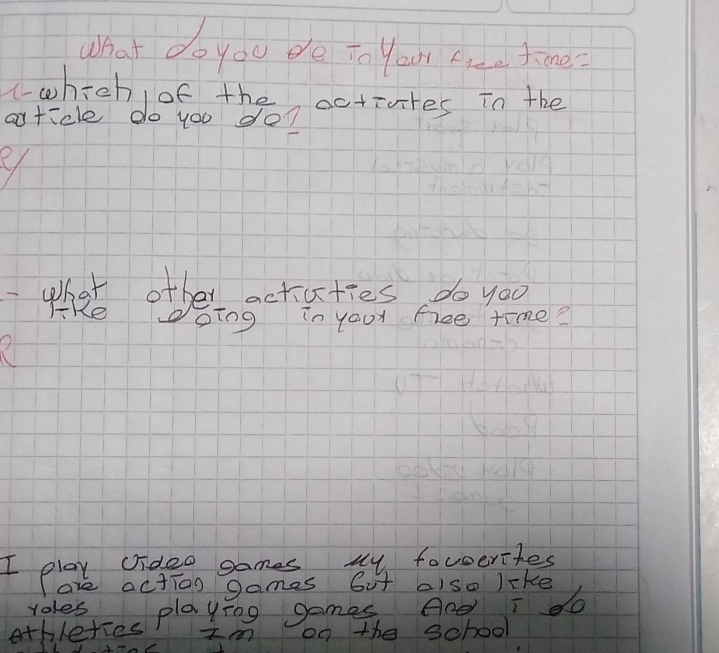 What do you do in your free time?
1- which of the activites in the
article do you do?
R/
- what other activities do you
like doing in your free time?
R
I play video games My favoerites
are action games but also like
roles playing games And I do
athletics I'm on the school